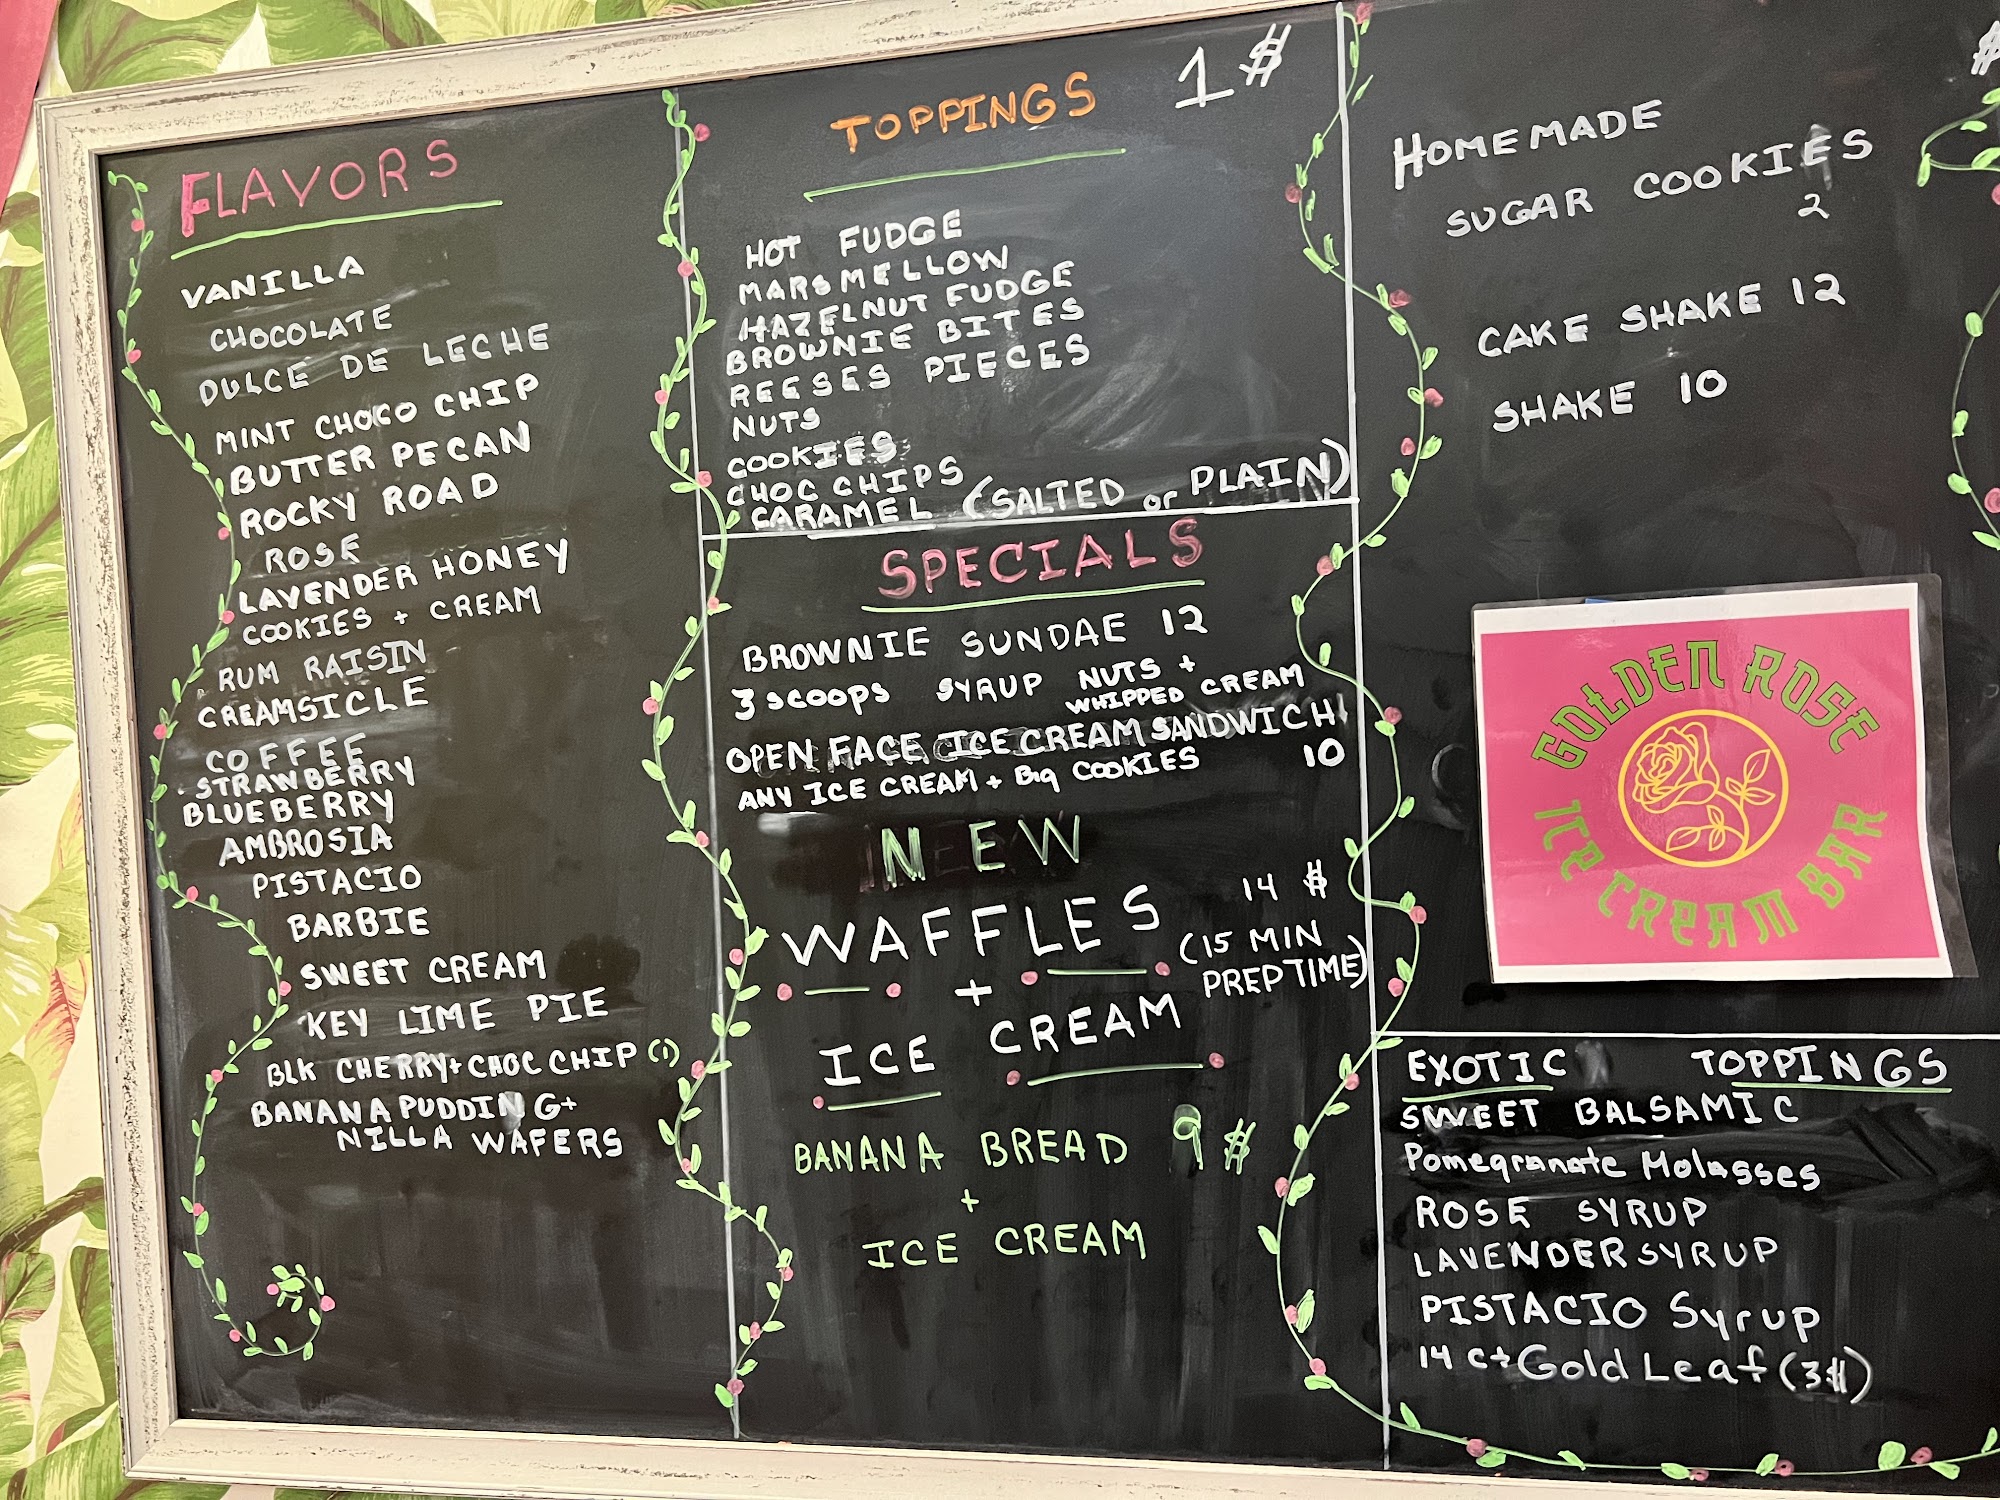 FLAVORS
VANILLA
CHOCOLATE
DULCE DE LECHE
MINT CHOCO CHIP
BUTTER PECAN
ROCKY ROAD
ROSE
LAVENDER HONEY
COOKIES + CREAM
RUM RAISIN
CREAMSICLE
COFFEE
STRAWBERRY
BLUEBERRY
AMBROSIA
PISTACIO
BARBIE
SWEET CREAM
KEY LIME PIE
BLK CHERRY + CHOC CHIP (1)
BANANA PUDDING +
NILLA WAFERS
TOPPINGS 1$
HOT FUDGE
MARSMELLOW
HAZELNUT FUDGE
BROWNIE BITES
REESES PIECES
NUTS
COOKIES
CHOC CHIPS
CARAMEL (SALTED or PLAIN)
SPECIALS
BROWNIE SUNDAE 12
3 scoops SYRUP NUTS +
WHIPPED CREAM
OPEN FACE ICE CREAM SANDWICH
ANY ICE CREAM + Big COOKIES 10
NEW
WAFFLES 14 $
+ (15 MIN
PREP TIME)
ICE CREAM
BANANA BREAD 9$
+
ICE CREAM
$
HOMEMADE
SUGAR COOKIES
2
CAKE SHAKE 12
SHAKE 10
GOLDEN ROSE
ICE CREAM BAR
EXOTIC TOPPINGS
SWEET BALSAMIC
Pomegranate Molasses
ROSE SYRUP
LAVENDER SYRUP
PISTACIO Syrup
14 ct Gold Leaf (3$)